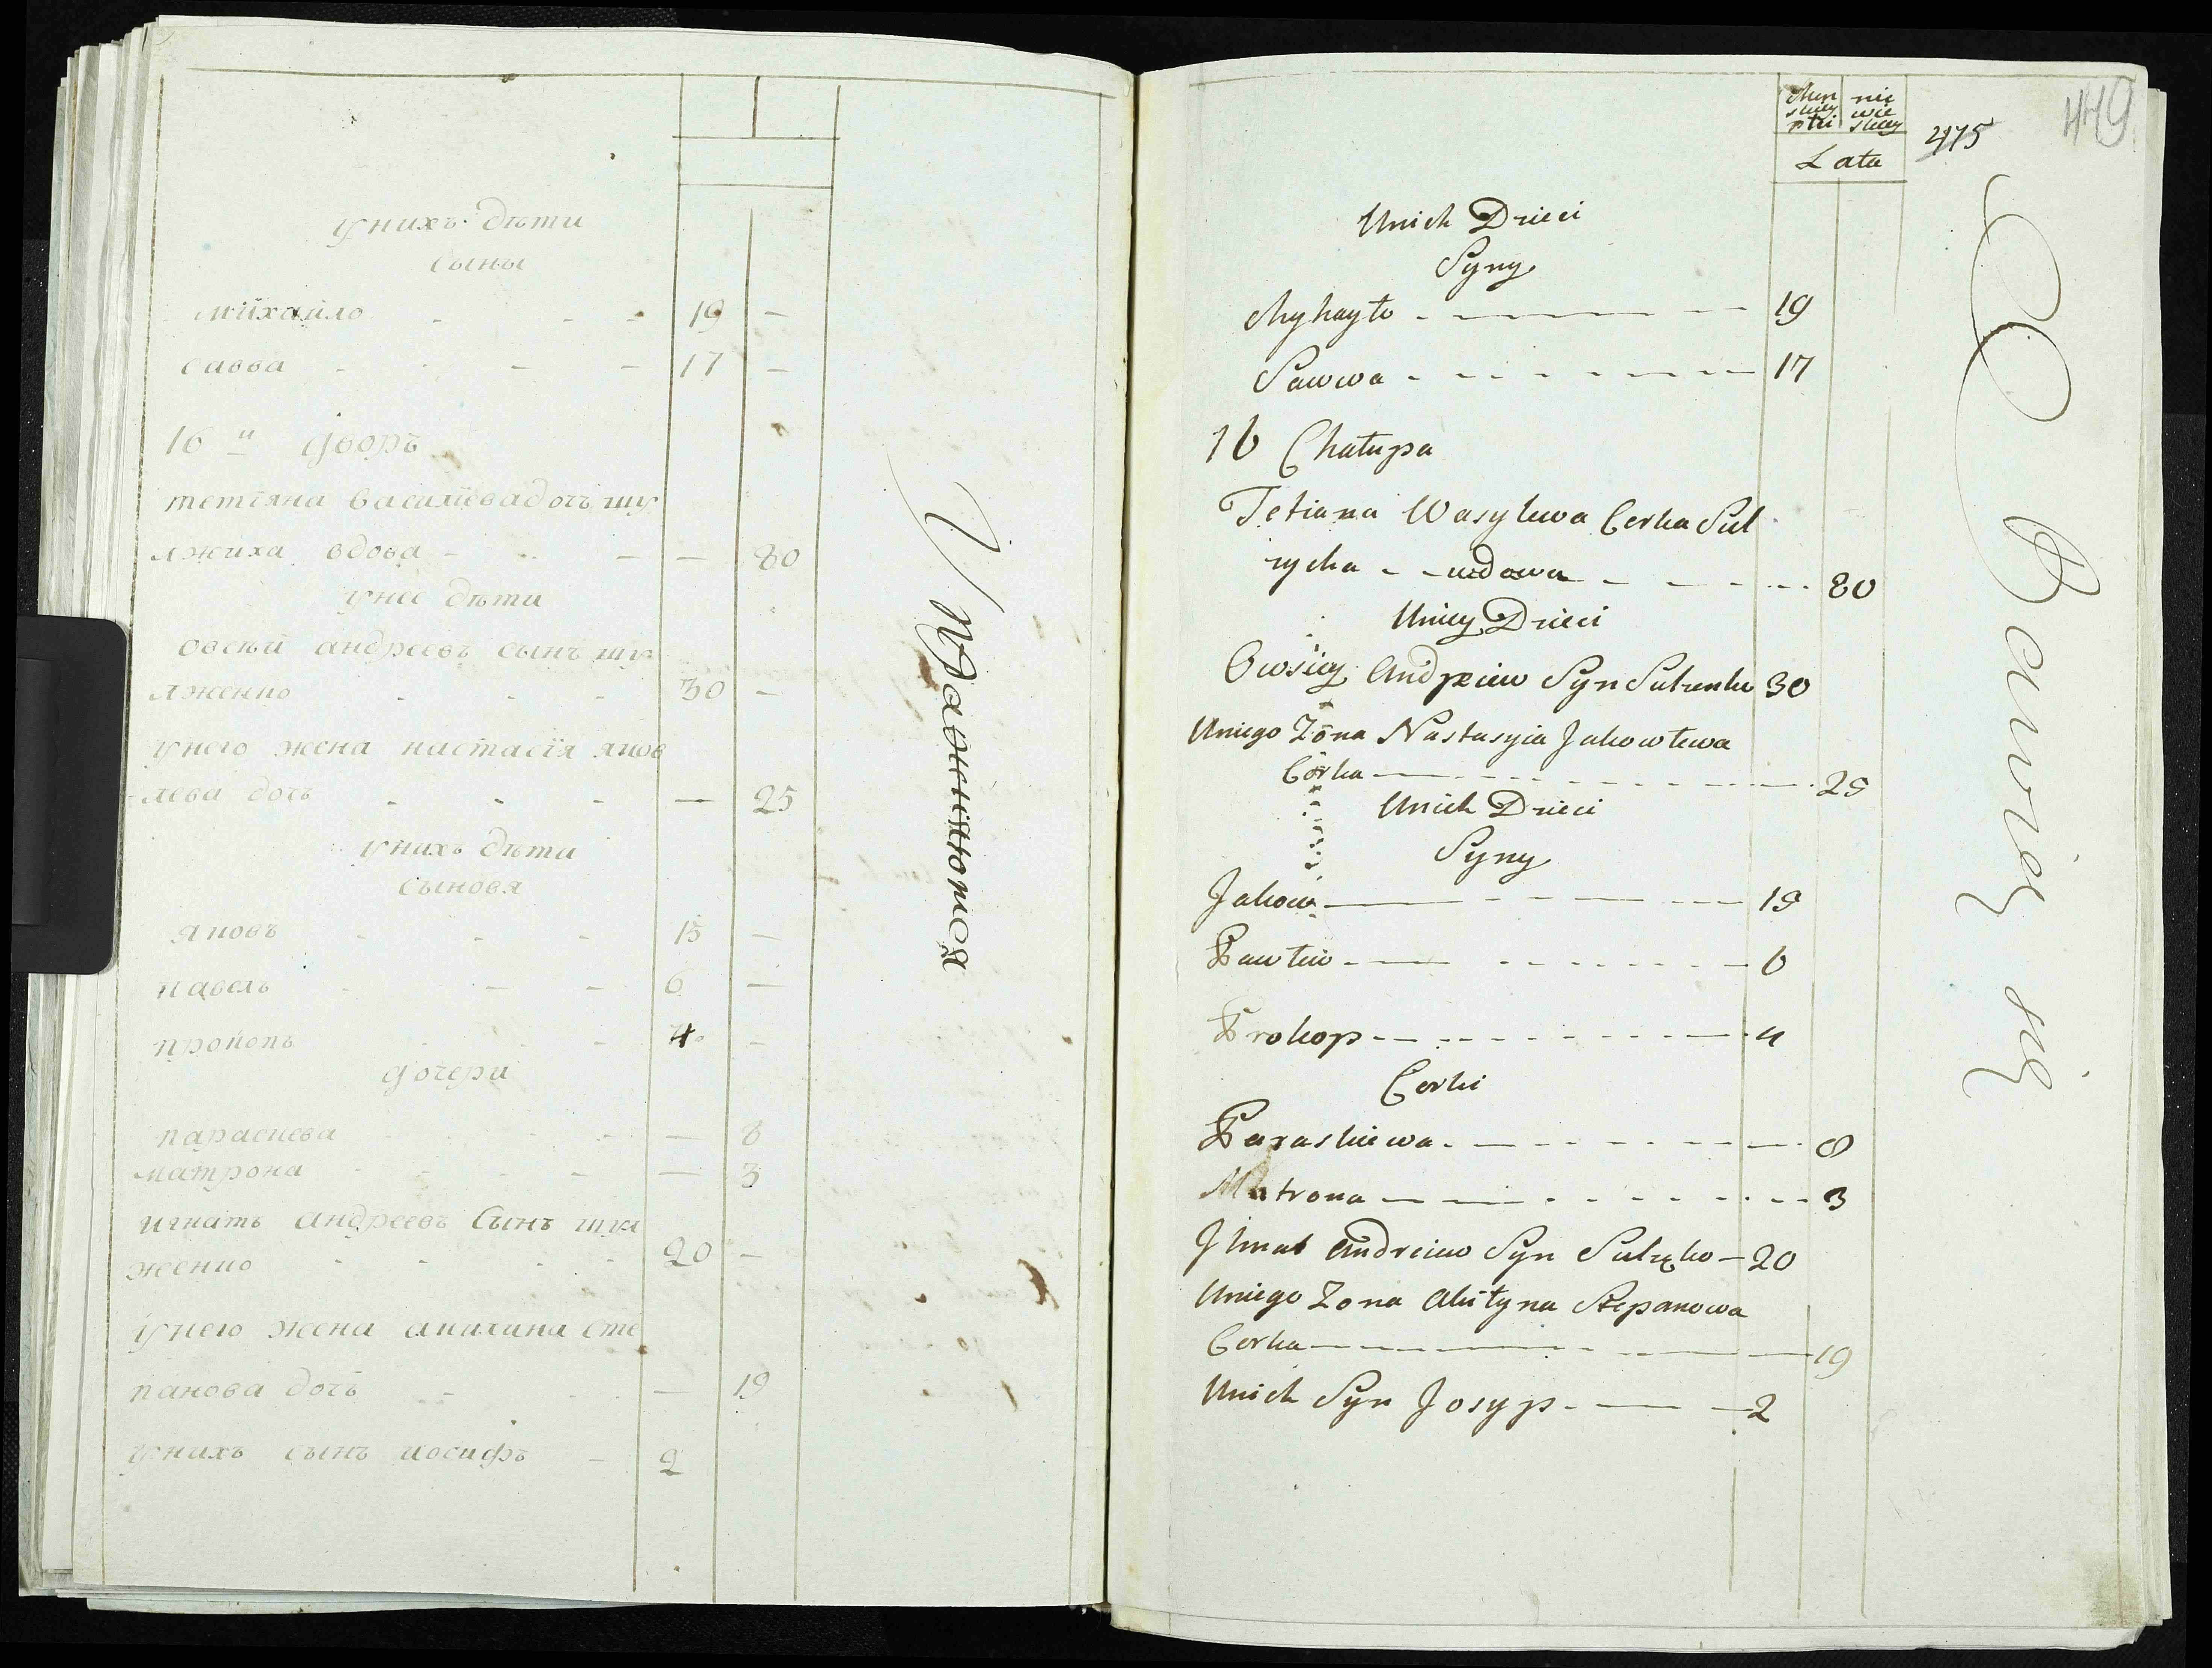 унихъ дѣти
сыны
михайло - - - 19 -
савва - - - 17 -
16 й дворъ
тетіяна василіева дочъ шу
лжиха вдова - - - 80
унее дѣти
овсѣй андреевъ сынъ шу
лженко - - - 30 -
унего жена настасія яков
лева дочъ - - - 25
унихъ дѣти
сыновя
яковъ - - - 15 -
павелъ - - - 6 -
прокопъ - - - 4 -
дочери
параскева - - - 8
матрона - - - 3
игнатъ андреевъ сынъ шул
женко - - - 20 -
унего жена акилина сте
панова дочъ - - - 19
унихъ сынъ иосифъ - 2
упражняются
449
475
Męn nie
skiey wie
płci skiey
Lata
Unich Dzieci
Syny
Myhayło - - - 19
Sawwa - - - 17
16 Chałupa
Tetiana Wasylewa Corka Sul
zycha - - wdowa - - - 80
Uniey Dzieci
Owsiey Andrziew Syn Sulzenko 30
Uniego Zona Nastasyia Jakowlewa
Corka - - - 25
Unich Dzieci
Syny
Jakow - - - 15
Pawlew - - - 6
Prokop - - - 4
Corki
Paraskiewa - - - 8
Matrona - - - 3
Ihnat Andreiew Syn Sulzęko - 20
Uniego Zona Akiłyna Stepanowa
Corka - - - 19
Unich Syn Josyp - - - 2
Bawią się